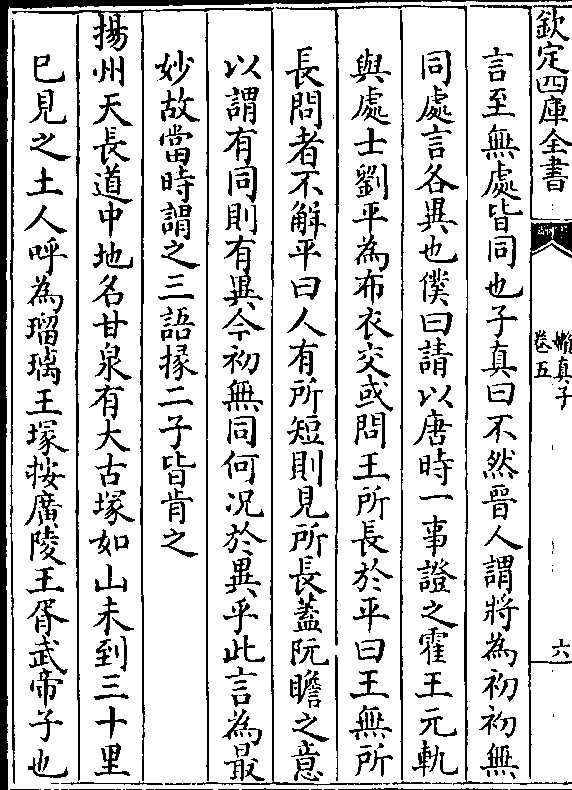 欽定四庫全書
懶真子
卷五
六
言至無處皆同也子真曰不然晉人謂將為初初無
同處言各異也僕曰請以唐時一事證之霍王元軌
與處士劉平為布衣交或問王所長於平曰王無所
長問者不解平曰人有所短則見所長蓋阮瞻之意
以謂有同則有異今初無同何况於異乎此言為最
妙故當時謂之三語掾二子皆肯之
揚州天長道中地名甘泉有大古塚如山未到三十里
巳見之土人呼為瑠璃王塚按廣陵王胥武帝子也